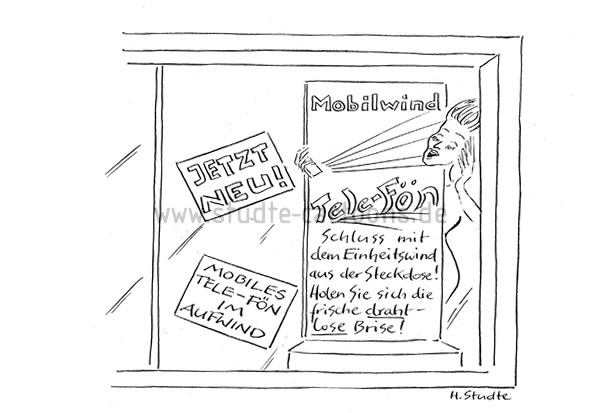 Mobilwind
JETZT
NEU!
Tele-Fön
www.studte-cartoons.de
Schluss mit
dem Einheitswind
aus der Steckdose!
Holen Sie sich die
frische draht-
lose Brise!
MOBILES
TELE-FÖN
IM
AUFWIND
H. Studte